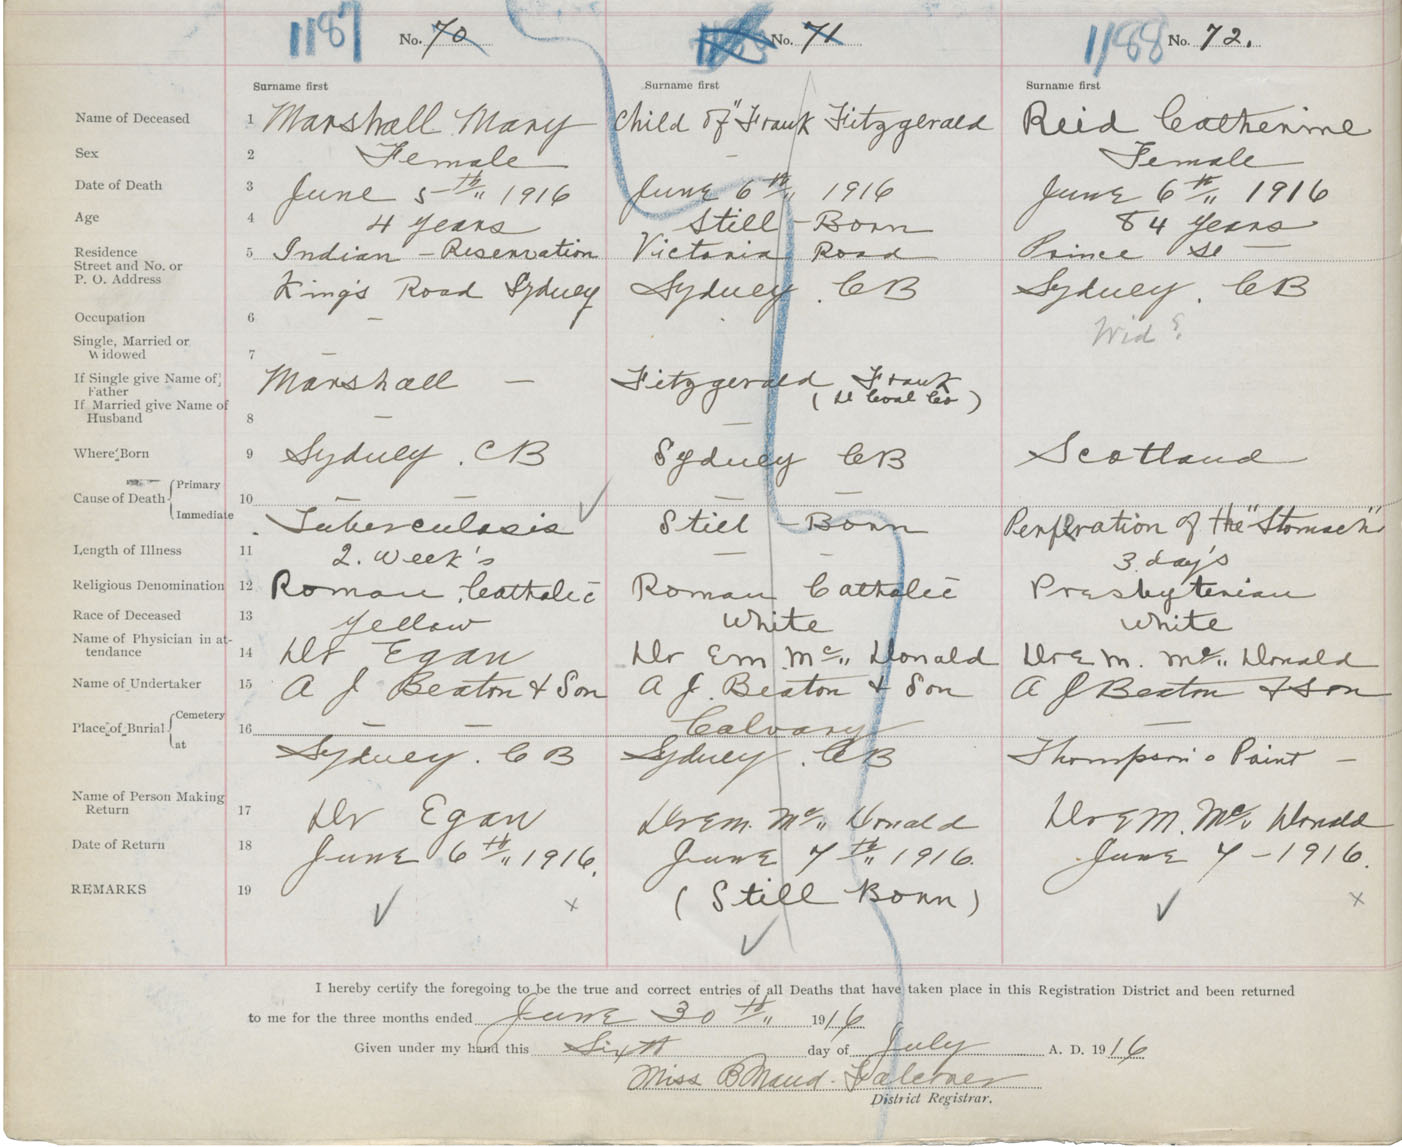 1187 No. 70 No. 71 1188 No. 72.
Surname first Surname first Surname first
Name of Deceased 1 Marshall Mary Child of "Frank Fitzgerald Reid Catherine
Sex 2 Female – Female
Date of Death 3 June 5th 1916 June 6th 1916 June 6th 1916
Age 4 4 years Still-Born 84 years
Residence 5 Indian – Reservation Victoria Road Prince St –
Street and No. or
P. O. Address King's Road Sydney Sydney. CB Sydney. CB
Occupation 6 – Wid ?
Single, Married or
Widowed 7 –
If Single give Name of Marshall – Fitzgerald, Frank
Father
If Married give Name of
Husband 8 – –
Where Born 9 Sydney. CB Sydney CB Scotland
Primary
Cause of Death 10 – – – –
Immediate Tuberculosis Still-Born Perforation of the "Stomach"
Length of Illness 11 2. week's – – 3 day's
Religious Denomination 12 Roman Catholic Roman Catholic Presbyterian
Race of Deceased 13 Yellow White White
Name of Physician in at-
tendance 14 Dr Egan Dr E M. Mc Donald Dr E M. Mc Donald
Name of Undertaker 15 A J Beaton & Son A J. Beaton & Son A J Beaton & Son
Cemetery
Place of Burial 16 – – Calvary –
at Sydney. CB Sydney. CB Thompson's Point –
Name of Person Making
Return 17 Dr Egan Dr E M. Mc Donald Dr E M. Mc Donald
Date of Return 18 June 6th 1916. June 7th 1916. June 7 – 1916.
REMARKS 19 (Still Born)
I hereby certify the foregoing to be the true and correct entries of all Deaths that have taken place in this Registration District and been returned
to me for the three months ended June 30th 1916
Given under my hand this Sixth day of July A. D. 1916
Miss B Maud.
District Registrar.